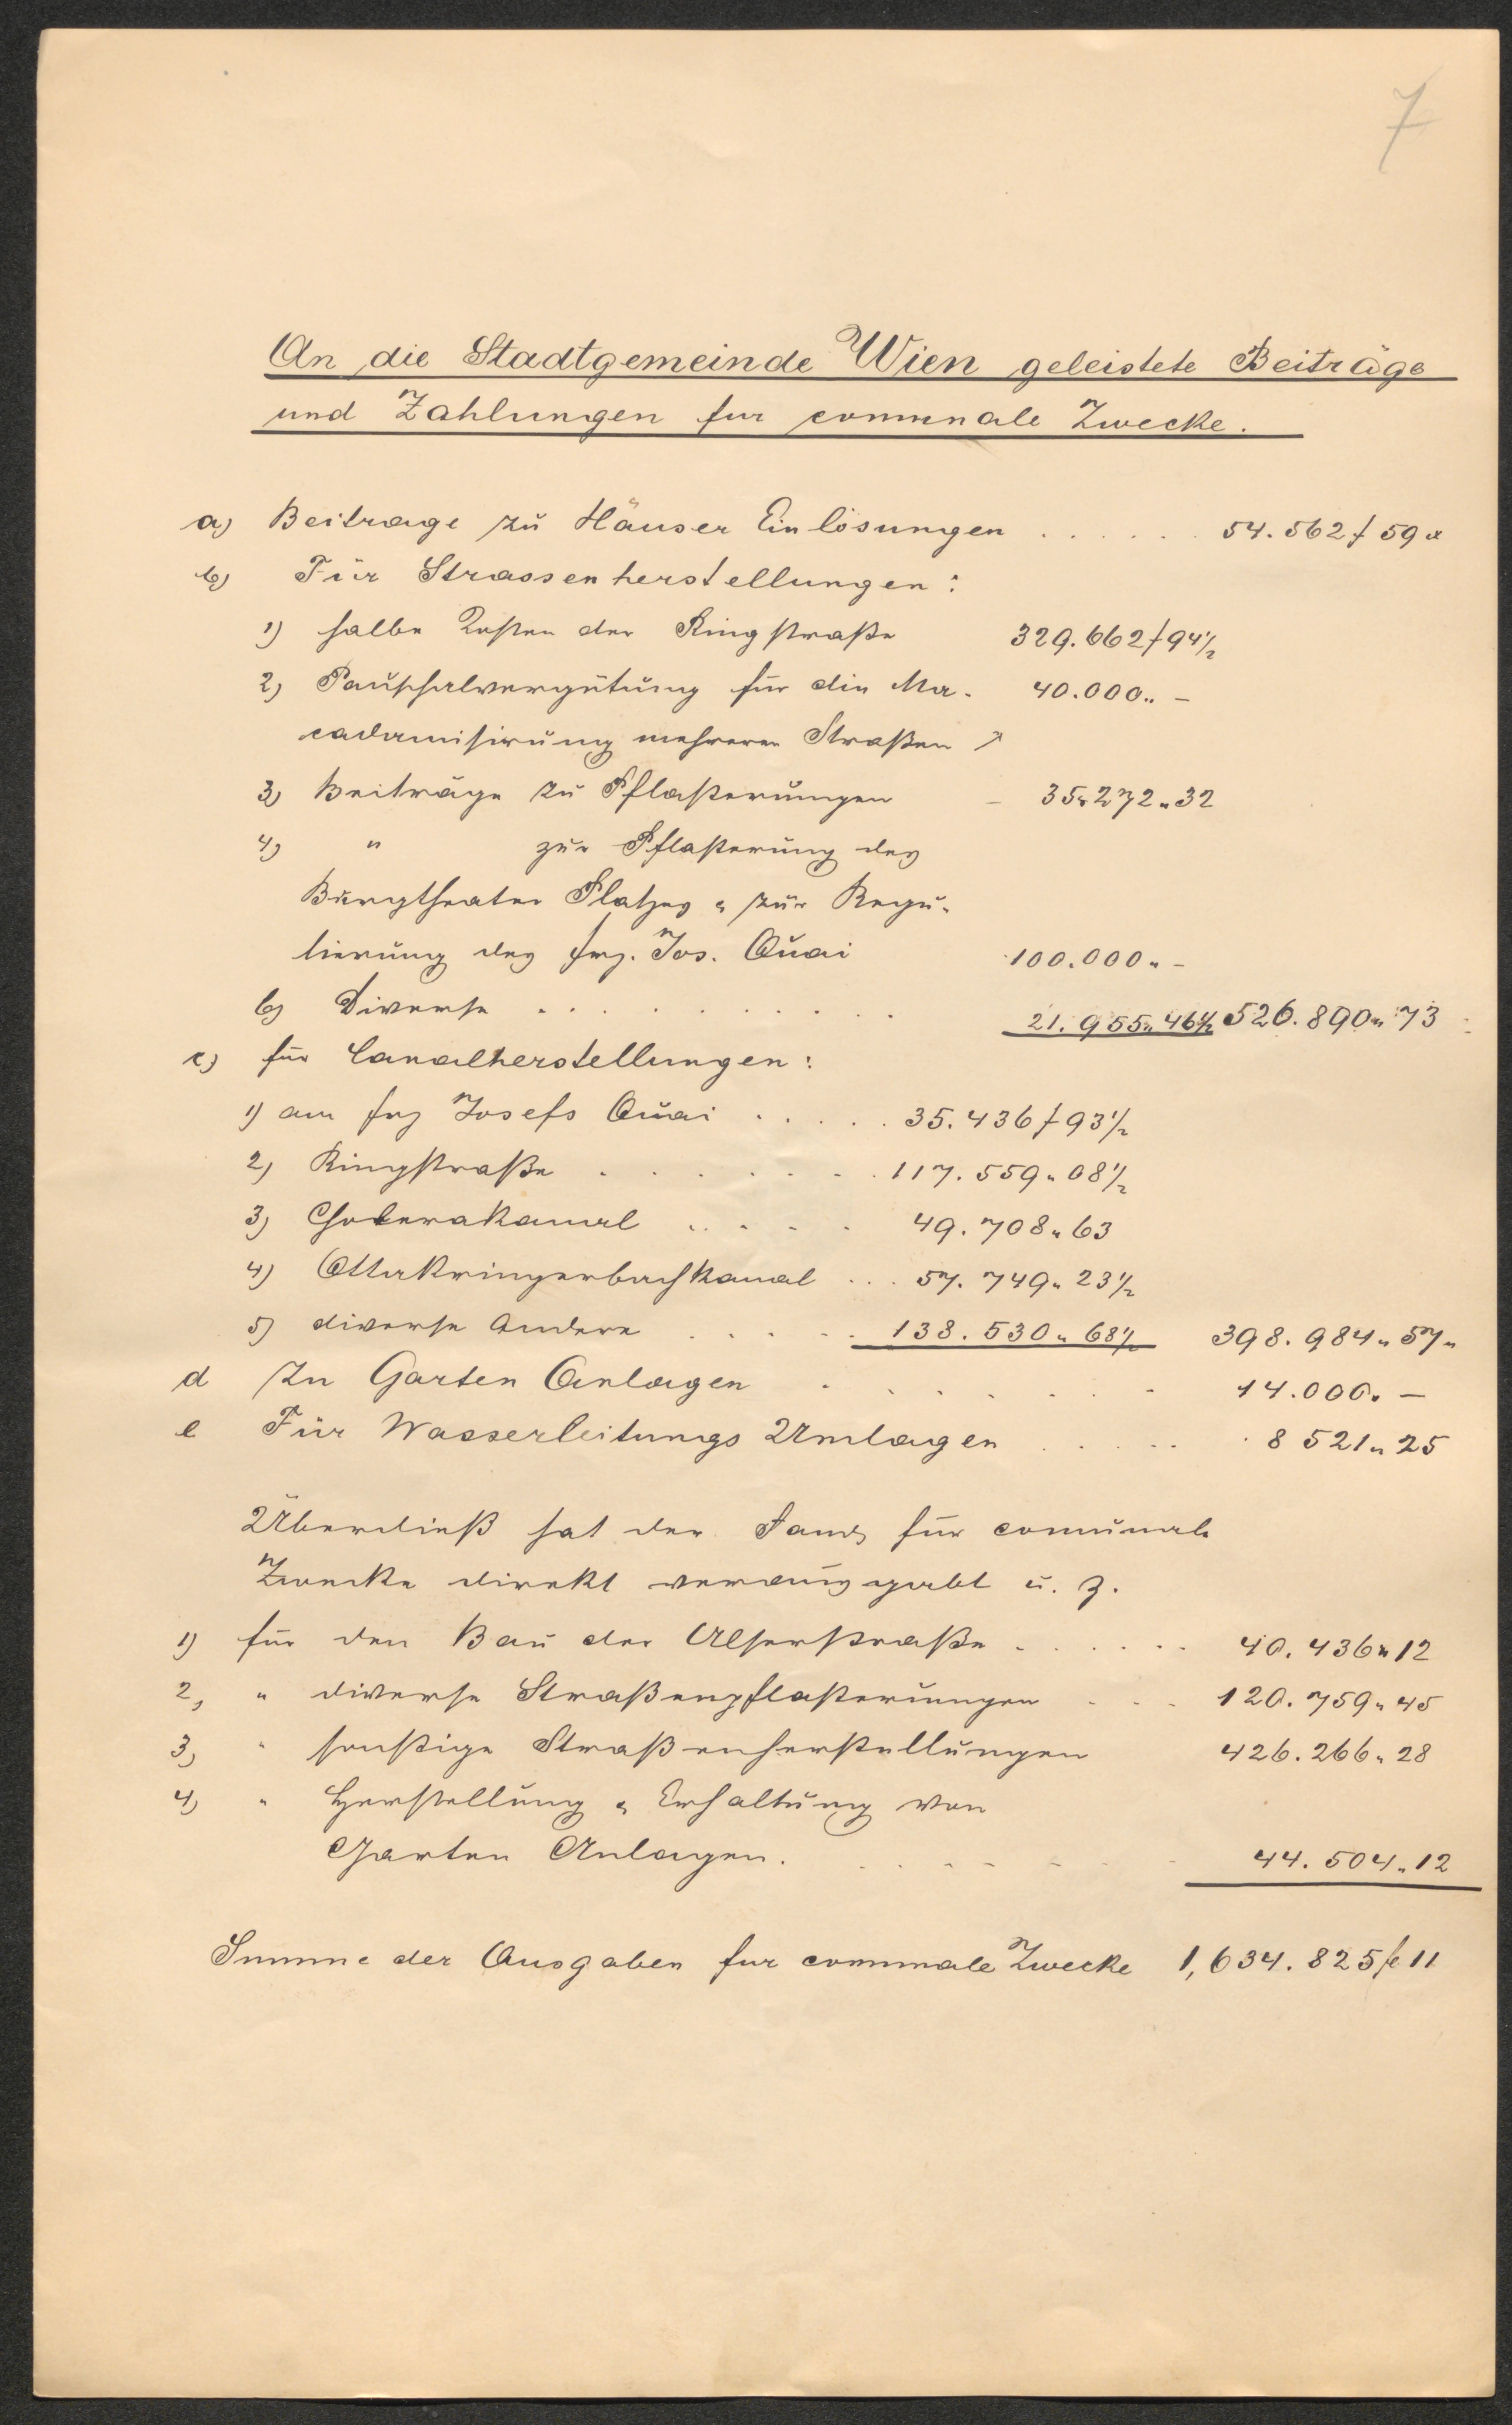 7
An die Stadtgemeinde Wien geleistete Beiträge
und Zahlungen fur comunale Zwecke.
a) Beitrage zu Häuser Einlösungen . . . . . . 54.562 f 59 x
b) Für Strassenherstellungen:
1) halbe Kosten der Ringstraße 329.662 f 94½
2) Pauschalvergütung für die Ma- 40.000 „ –
cadamisirung mehrerer Straßen
3) Beiträge zu Pflasterungen – 35.272 „ 32
4) " zur Pflasterung des
Burgtheater Platzes & zur Regu-
lierung des Frz. Jos. Quai 100.000 „ –
6) Diverse . . . . . . . . 21.955 „ 46½ 526.890 „ 73
c) für Canalherstellungen:
1) am Frz Josefs Quai . . . . . 35.436 f 93½
2) Ringstraße . . . . . . . 117.559 „ 08½
3) Cholerakanal . . . . . 49.708 „ 63
4) Ottakringerbachkanal . . . 57.749 „ 23½
5) diverse Andere . . . . . 138.530 „ 68½ 398.984 „ 57 „
d Zu Garten Anlagen . . . . . . . 14.000 „ –
e Für Wasserleitungs Umlagen . . . . . . 8 521 „ 25
Überdieß hat der Fond für comunale
Zwecke direkt verausgabt u. z.
1) für den Bau der Alserstraße . . . . . . 40.436 „ 12
2, " diverse Straßenpflasterungen . . . 120.759 „ 45
3) " sonstige Straßenherstellungen 426.266 „ 28
4) " Herstellung & Erhaltung von
Garten Anlagen. . . . . . . . 44.504 „ 12
Summe der Ausgaben fur communale Zwecke 1,634.825 f 11